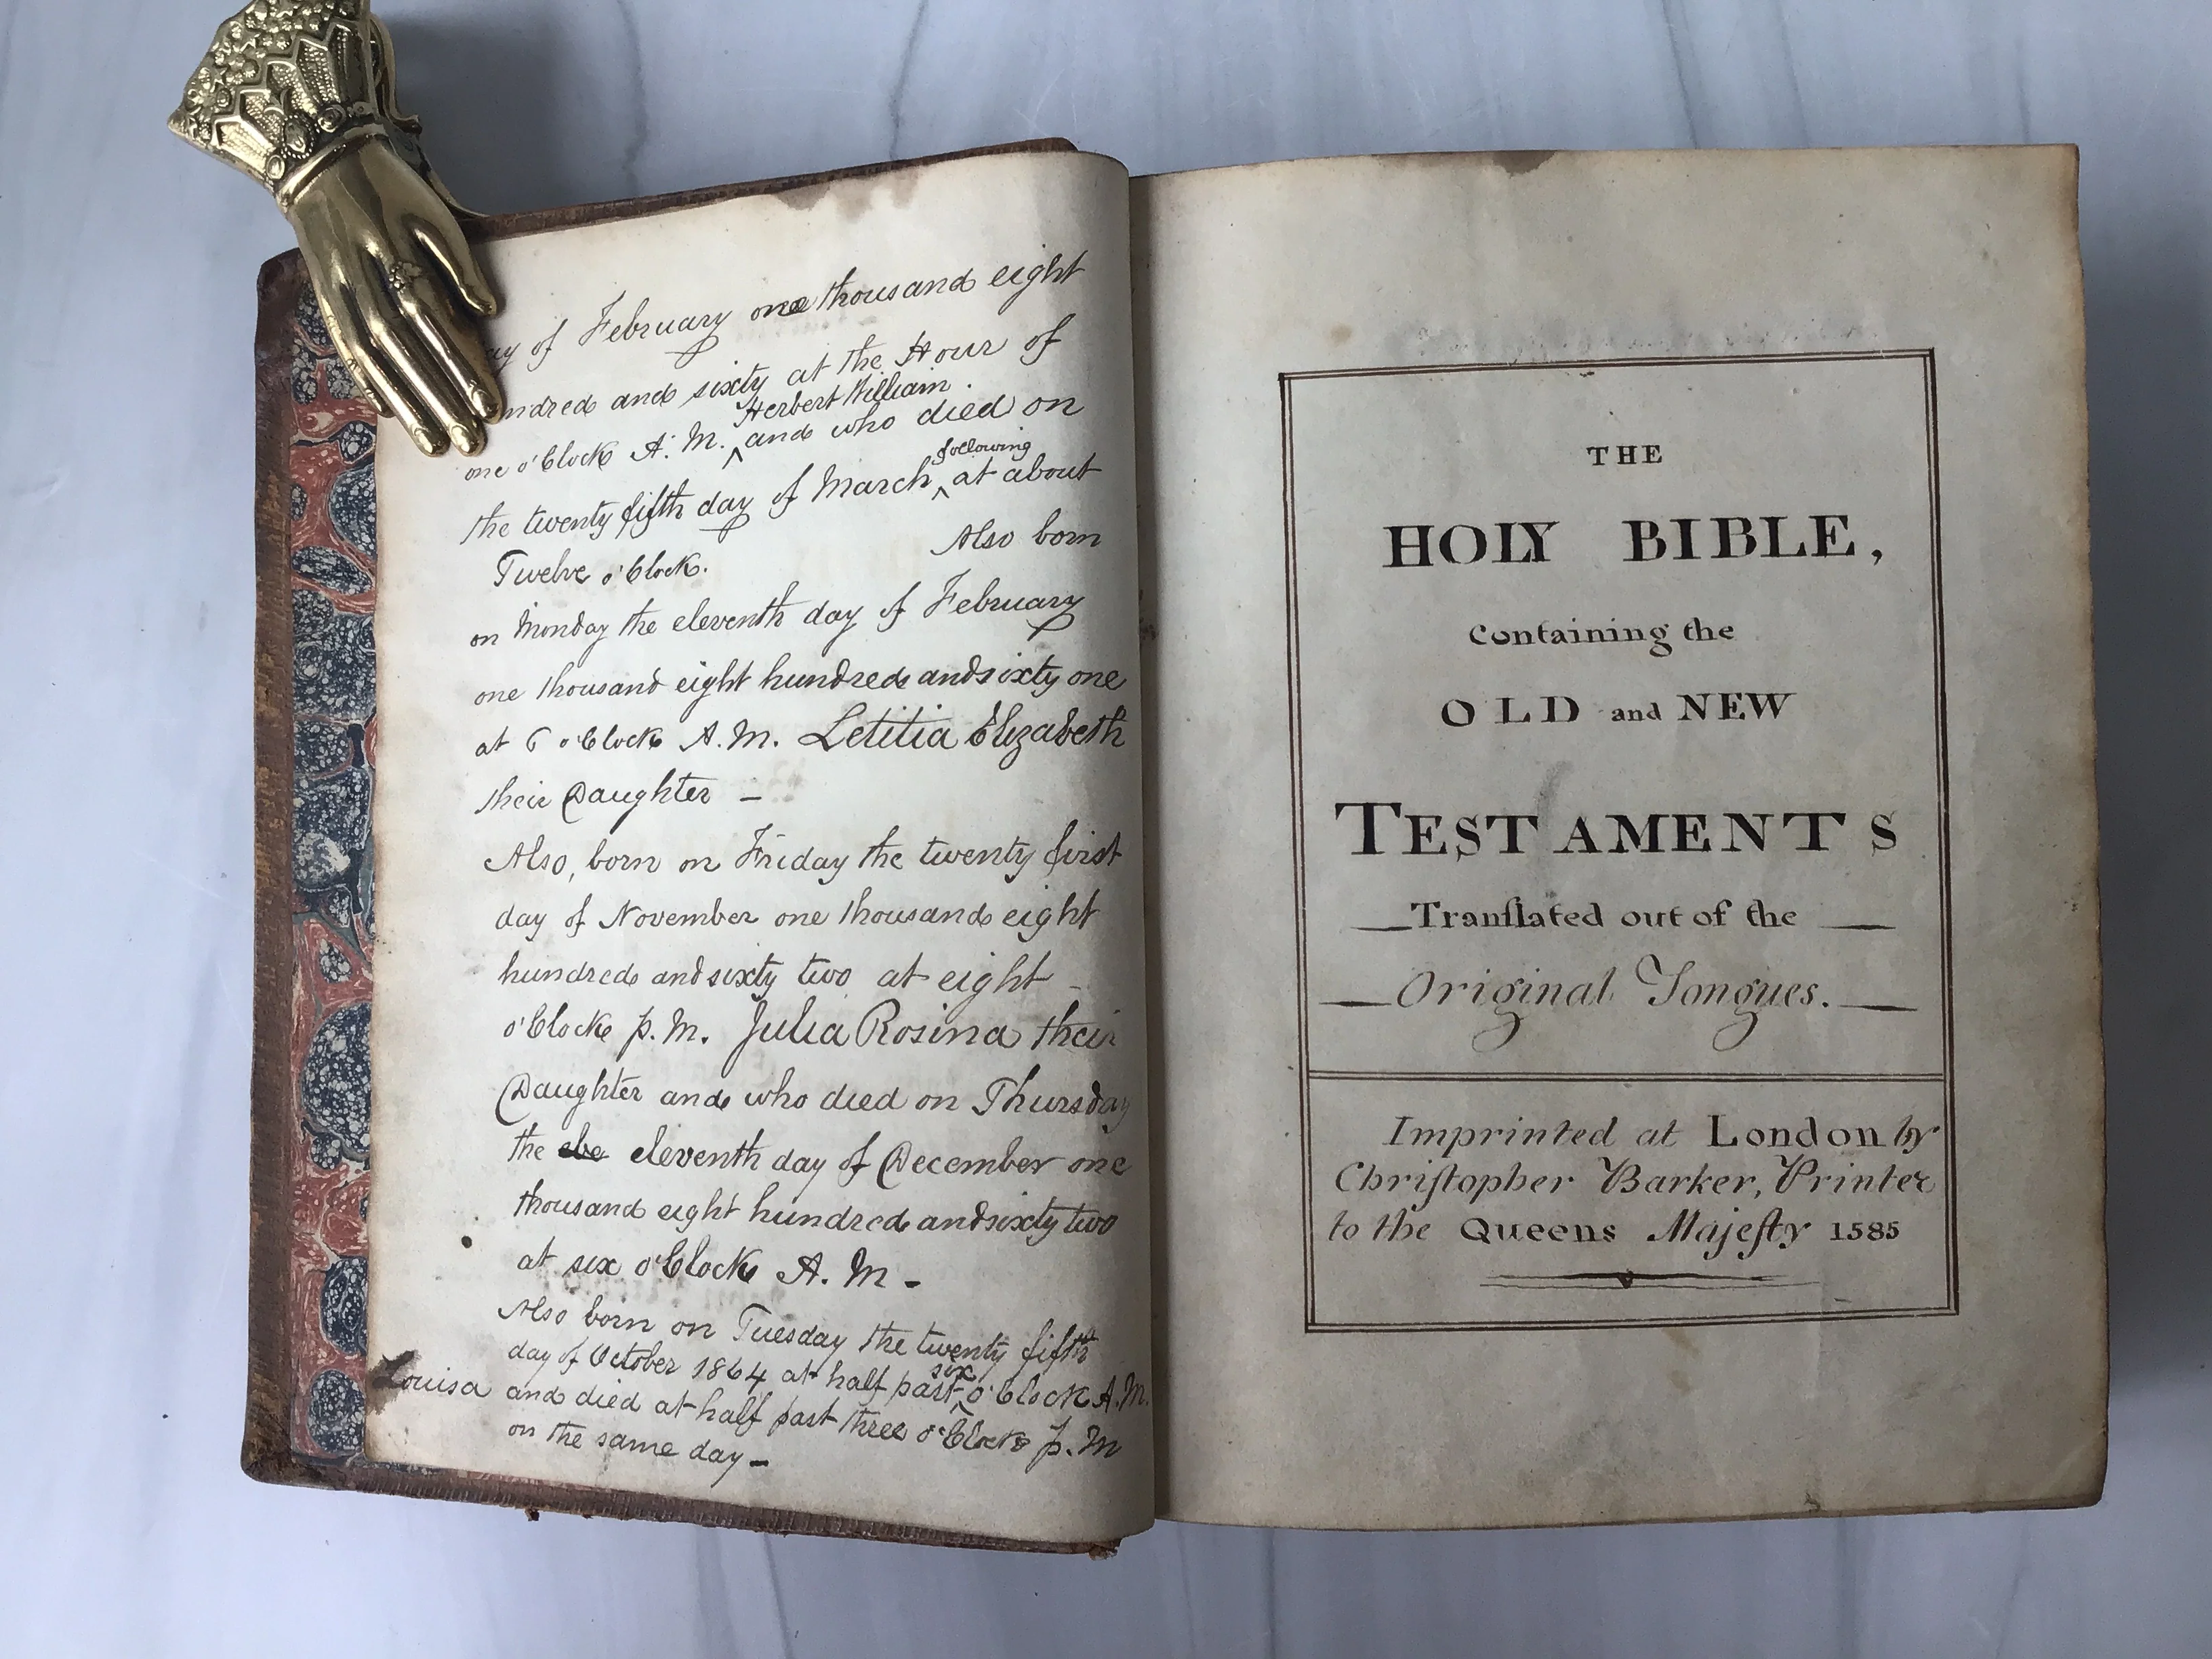 ay of February one thousand eight
ndred and sixty at the Hour of
Herbert William.
one o'Clock A.M. ^ and who died on
following
the twenty fifth day of March ^ at about
Twelve o'Clock. Also born
on Monday the eleventh day of February
one thousand eight hundred and sixty one
at 6 o'Clock A.M. Letitia Elizabeth
their Daughter —
Also, born on Friday the twenty first
day of November one thousand eight
hundred and sixty two at eight
o'Clock p.M. Julia Rosina their
Daughter and who died on Thursday
the ele eleventh day of December one
thousand eight hundred and sixty two
at six o'Clock A.M –
Also born on Tuesday the twenty fifth
six
day of October 1864 at half past ^ o'Clock A.M.
Louisa and died at half past three o'Clock p.M
on the same day –
THE
HOLY BIBLE,
Containing the
OLD and NEW
TESTAMENTS
Tranſlated out of the
Original Tongues.
Imprinted at London by
Chriſtopher Barker, Printer
to the Queens Majeſty 1585